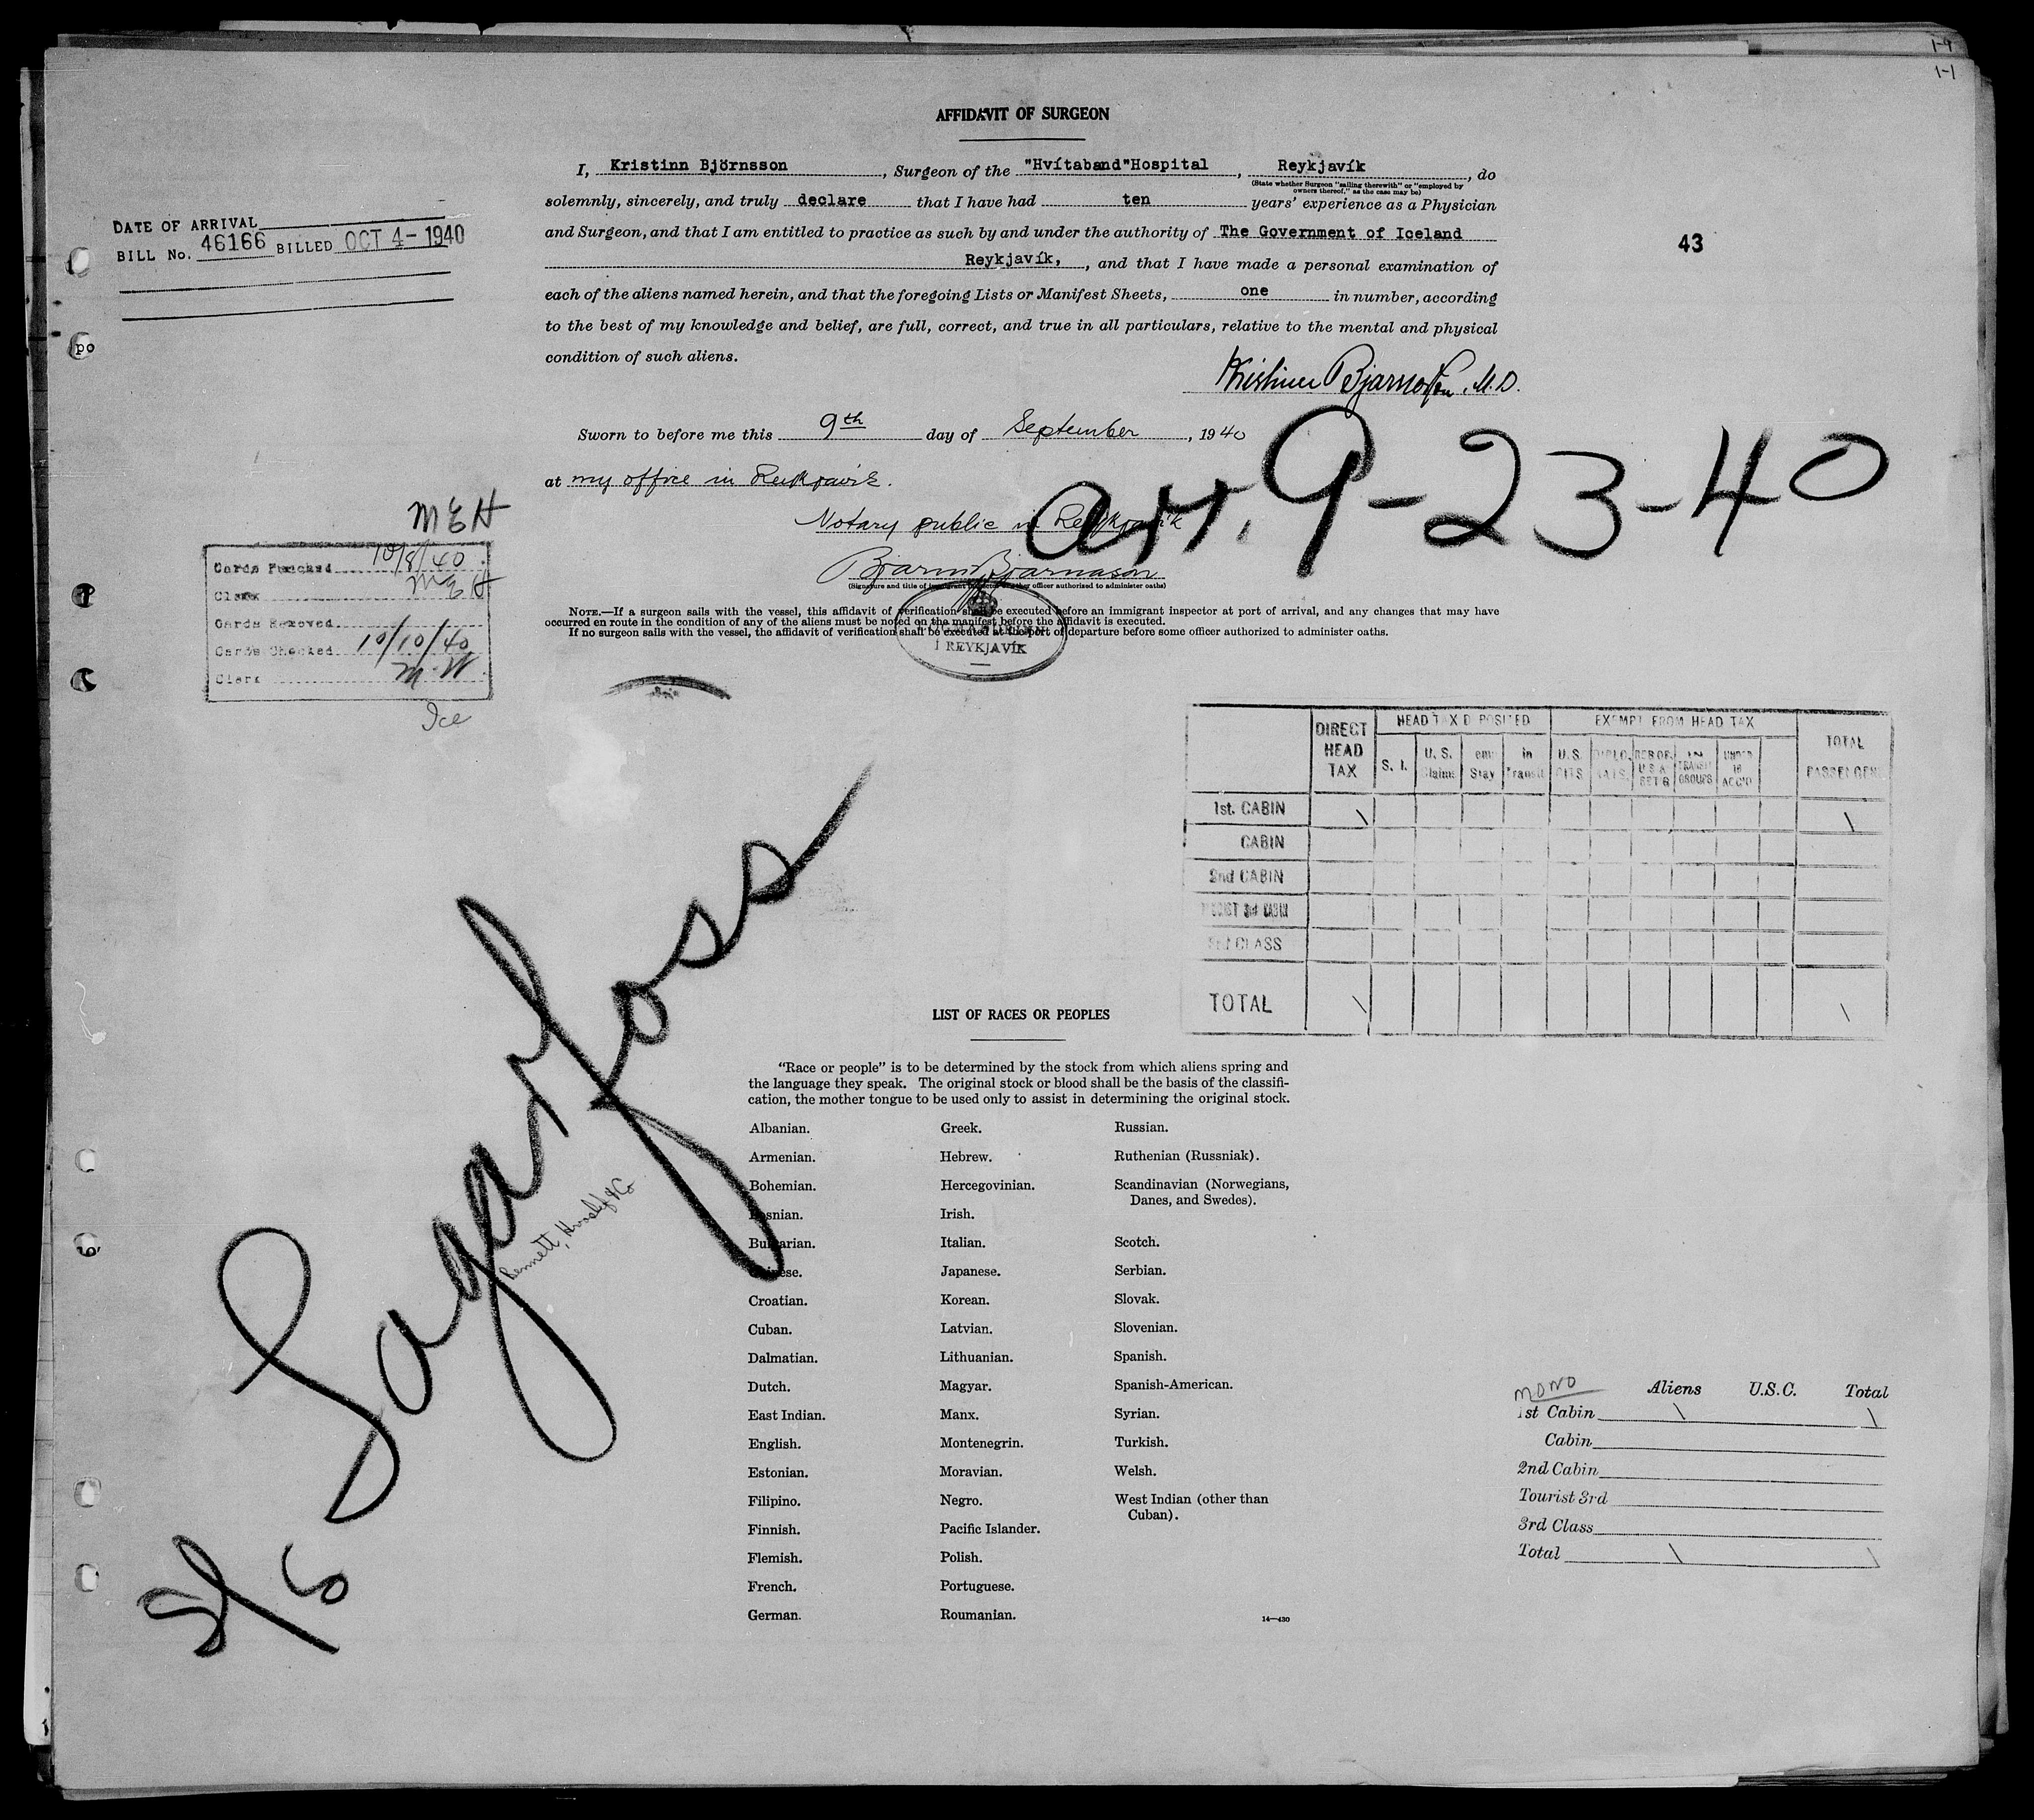 1-9
1-1
AFFIDAVIT OF SURGEON
I, Kristinn Björnsson, Surgeon of the "Hvítaband"Hospital, Reykjavík, do
(State whether Surgeon "sailing therewith" or "employed by owners thereof," as the case may be)
solemnly, sincerely, and truly declare that I have had ten years' experience as a Physician
and Surgeon, and that I am entitled to practice as such by and under the authority of The Government of Iceland
Reykjavík, , and that I have made a personal examination of
each of the aliens named herein, and that the foregoing Lists or Manifest Sheets, one in number, according
to the best of my knowledge and belief, are full, correct, and true in all particulars, relative to the mental and physical
condition of such aliens.
M.D.
DATE OF ARRIVAL
BILL No. 46166 BILLED OCT 4-1940
43
po
Sworn to before me this 9th day of September, 1940
at my office in Reykjavik.
Notary public in Reykjavik
Bjarni Bjarnason
(Signature and title of immigrant inspector or other officer authorized to administer oaths)
arr. 9-23-40
NOTE.—If a surgeon sails with the vessel, this affidavit of verification shall be executed before an immigrant inspector at port of arrival, and any changes that may have
occurred en route in the condition of any of the aliens must be noted on the manifest before the affidavit is executed.
If no surgeon sails with the vessel, the affidavit of verification shall be executed at the port of departure before some officer authorized to administer oaths.
Í REYKJAVÍK
MEH
Cards Punched 10/8/40
Clerk MEH
Cards Removed
Cards Checked 10/10/40
Clerk M.W
Ice
DIRECT HEAD TAX
HEAD TAX DEPOSITED
EXEMPT FROM HEAD TAX
TOTAL PASSENGERS
S. I.
U. S. Claims
Stay
in Transit
U.S. CITS
IN TRANSIT GROUPS
UNDER 16 ACC'D
1st. CABIN \ \
CABIN
2nd CABIN
TOURIST 3rd CABIN
3rd CLASS
TOTAL \ \
S/S Sagarfoss
Bennett, Hvoslef & Co
LIST OF RACES OR PEOPLES
"Race or people" is to be determined by the stock from which aliens spring and
the language they speak. The original stock or blood shall be the basis of the classifi-
cation, the mother tongue to be used only to assist in determining the original stock.
Albanian.
Armenian.
Bohemian.
Bosnian.
Bulgarian.
Chinese.
Croatian.
Cuban.
Dalmatian.
Dutch.
East Indian.
English.
Estonian.
Filipino.
Finnish.
Flemish.
French.
German.
Greek.
Hebrew.
Hercegovinian.
Irish.
Italian.
Japanese.
Korean.
Latvian.
Lithuanian.
Magyar.
Manx.
Montenegrin.
Moravian.
Negro.
Pacific Islander.
Polish.
Portuguese.
Roumanian.
Russian.
Ruthenian (Russniak).
Scandinavian (Norwegians,
Danes, and Swedes).
Scotch.
Serbian.
Slovak.
Slovenian.
Spanish.
Spanish-American.
Syrian.
Turkish.
Welsh.
West Indian (other than
Cuban).
14—430
MONO Aliens U.S.C. Total
1st Cabin \ \
Cabin
2nd Cabin
Tourist 3rd
3rd Class
Total \ \